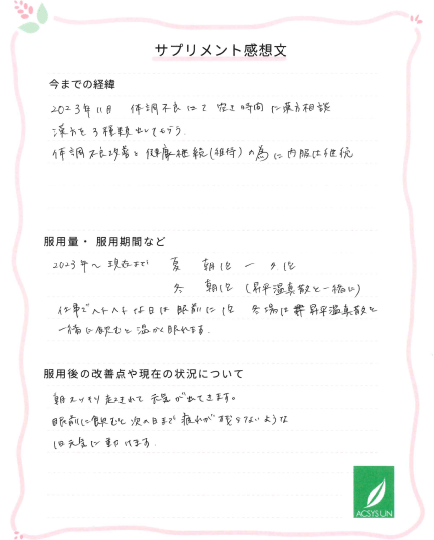 サプリメント感想文
今までの経緯
2023年11月 体調不良にて 空き時間に漢方相談
漢方を3種類出してもらう.
体調不良改善と健康継続(維持)の為に内服は継続
服用量・服用期間など
2023年~現在まで 夏 朝1包 ー 夕1包
冬 朝1包 (昇平温真散と一緒に)
仕事でヘトヘトな日は眠前に1包 冬場は昇平温真散と
一緒に飲むと温かく眠れます.
服用後の改善点や現在の状況について
朝スッキリ起きれて元気が出てきます。
眠前に飲むと次の日まで疲れが残らないような
元気に動けます.
ACSYSUN